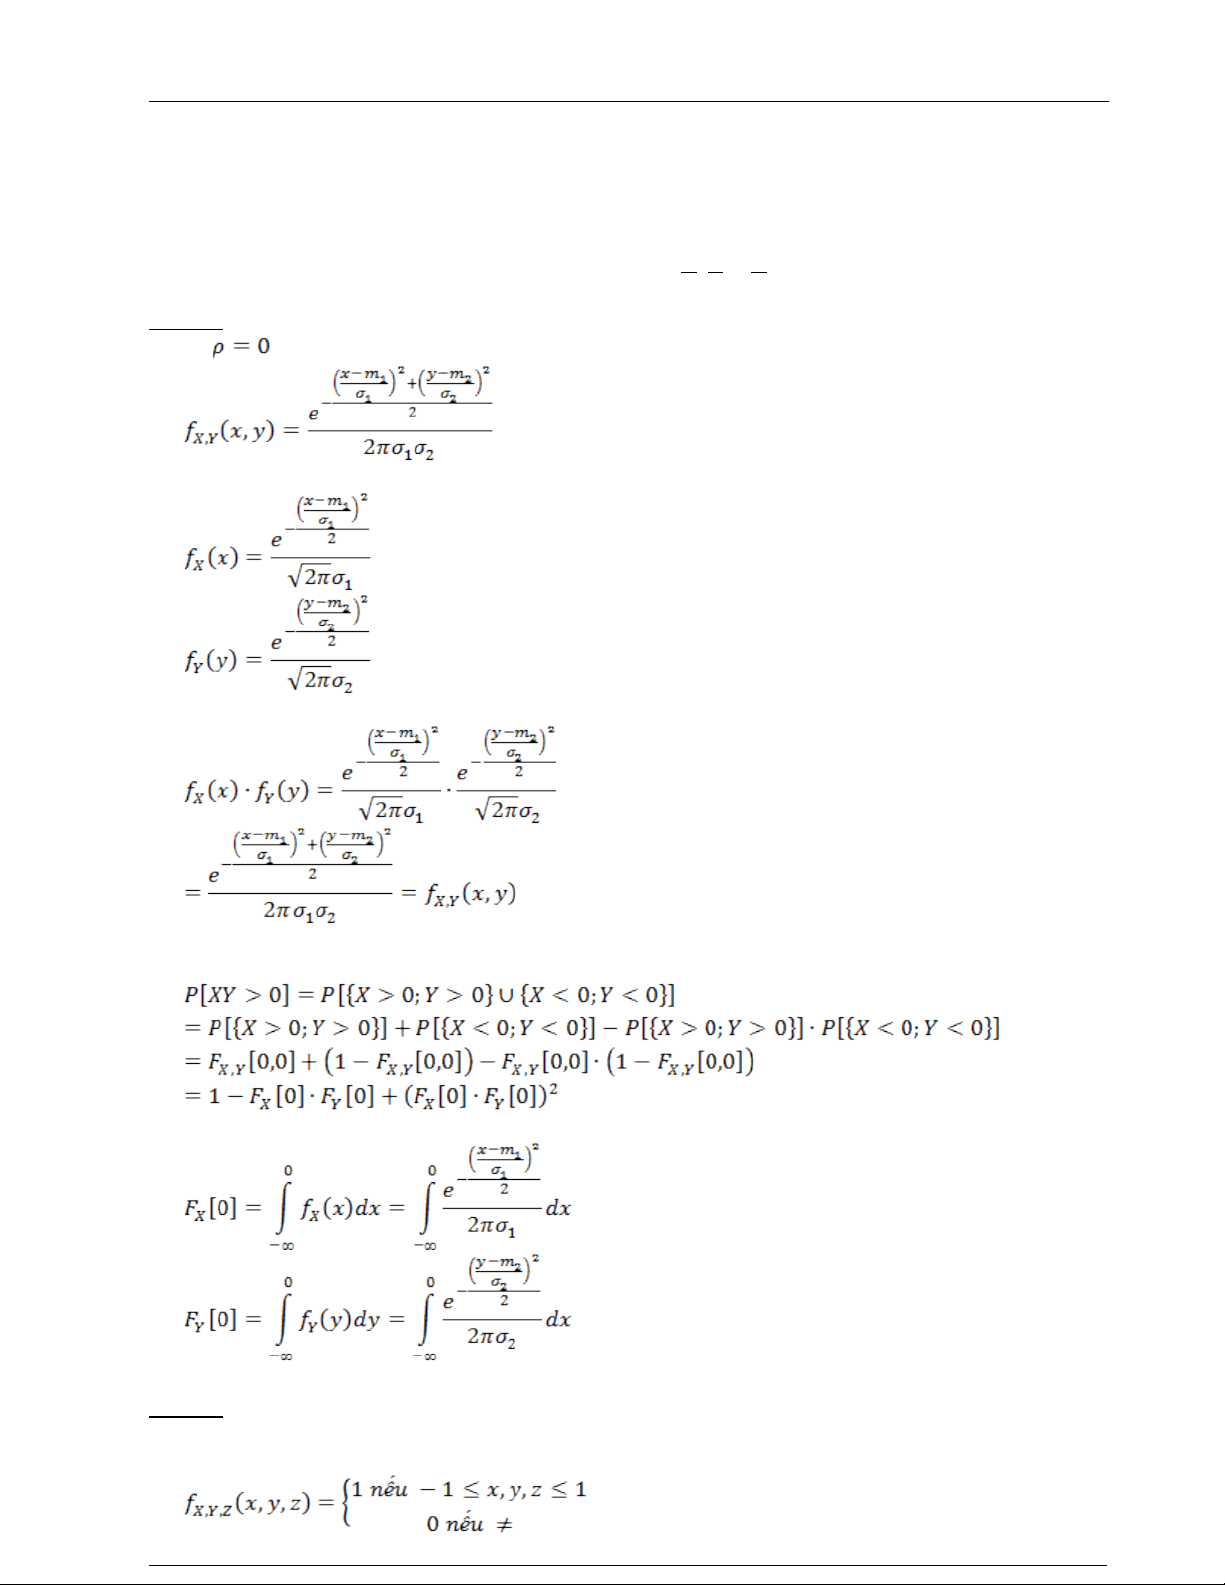 ρ = 0
f_{X,Y}(x, y) = \frac{e^{-\frac{\left(\frac{x-m_1}{σ_1}\right)^2+\left(\frac{y-m_2}{σ_2}\right)^2}{2}}}{2πσ_1σ_2}
f_X(x) = \frac{e^{-\frac{\left(\frac{x-m_1}{σ_1}\right)^2}{2}}}{\sqrt{2π}σ_1}
f_Y(y) = \frac{e^{-\frac{\left(\frac{y-m_2}{σ_2}\right)^2}{2}}}{\sqrt{2π}σ_2}
f_X(x) · f_Y(y) = \frac{e^{-\frac{\left(\frac{x-m_1}{σ_1}\right)^2}{2}}}{\sqrt{2π}σ_1} · \frac{e^{-\frac{\left(\frac{y-m_2}{σ_2}\right)^2}{2}}}{\sqrt{2π}σ_2}
= \frac{e^{-\frac{\left(\frac{x-m_1}{σ_1}\right)^2+\left(\frac{y-m_2}{σ_2}\right)^2}{2}}}{2πσ_1σ_2} = f_{X,Y}(x, y)
P[XY > 0] = P[{X > 0; Y > 0} ∪ {X < 0; Y < 0}]
= P[{X > 0; Y > 0}] + P[{X < 0; Y < 0}] − P[{X > 0; Y > 0}] · P[{X < 0; Y < 0}]
= F_{X,Y}[0,0] + (1 − F_{X,Y}[0,0]) − F_{X,Y}[0,0] · (1 − F_{X,Y}[0,0])
= 1 − F_X[0] · F_Y[0] + (F_X[0] · F_Y[0])^2
F_X[0] = \int_{-∞}^{0} f_X(x)dx = \int_{-∞}^{0} \frac{e^{-\frac{\left(\frac{x-m_1}{σ_1}\right)^2}{2}}}{2πσ_1} dx
F_Y[0] = \int_{-∞}^{0} f_Y(y)dy = \int_{-∞}^{0} \frac{e^{-\frac{\left(\frac{y-m_2}{σ_2}\right)^2}{2}}}{2πσ_2} dx
f_{X,Y,Z}(x, y, z) = { 1 nếu − 1 ≤ x, y, z ≤ 1
0 nếu ≠